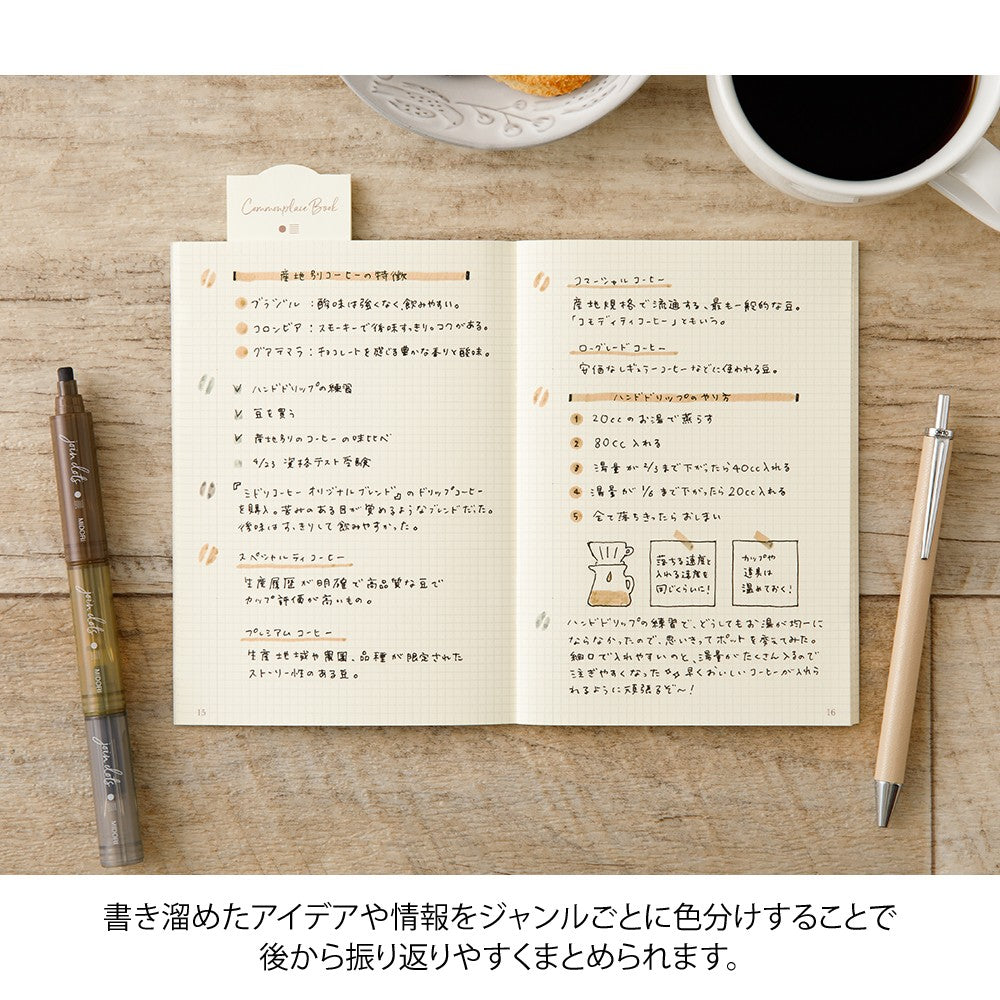 Commonplace Book
産地別コーヒーの特徴
ブラジル：酸味は強くなく、飲みやすい。
コロンビア：スモーキーで後味すっきり。コクがある。
グアテマラ：チョコレートを感じる豊かな香りと酸味。
ハンドドリップの練習
豆を買う
産地別のコーヒーの味比べ
9/23 資格テスト受験
『ミドリコーヒー オリジナルブレンド』のドリップコーヒー
を購入。苦みのある目が覚めるようなブレンドだった。
後味はすっきりして飲みやすかった。
スペシャルティコーヒー
生産履歴が明確で高品質な豆で
カップ評価が高いもの。
プレミアムコーヒー
生産地域や農園、品種が限定された
ストーリー性のある豆。
15
コマーシャルコーヒー
産地規格で流通する、最も一般的な豆。
「コモディティコーヒー」ともいう。
ローグレードコーヒー
安価なレギュラーコーヒーなどに使われる豆。
ハンドドリップのやり方
1 20ccのお湯で蒸らす
2 80cc入れる
3 湯量が2/3まで下がったら40cc入れる
4 湯量が1/6まで下がったら20cc入れる
5 全て落ちきったらおしまい
落ちる速度と
入れる速度を
同じくらいに!
カップや
道具は
温めておく!
ハンドドリップの練習で、どうしてもお湯が均一に
ならなかったので、思いきってポットを変えてみた。
細口で入れやすいのと、湯量がたくさん入るので
注ぎやすくなった 早くおいしいコーヒーが入れら
れるように頑張るぞ〜!
16
join dots
MIDORI
join dots
MIDORI
join dots
MIDORI
書き溜めたアイデアや情報をジャンルごとに色分けすることで
後から振り返りやすくまとめられます。